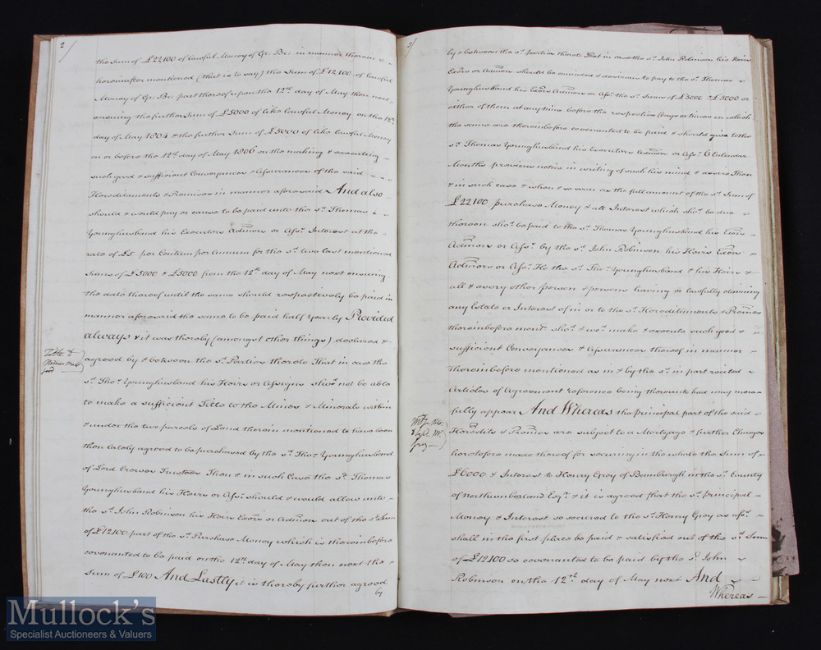 2
the Sum of £22100 of lawful Money of Gr. Br. in manner therein &
hereinafter mentioned (that is to say) the Sum of £12,100 of lawful
Money of Gr. Br. part thereof upon the 12th day of May then next
ensuing the further Sum of £5000 of like lawful Money on the 12th
day of May 1804 & the further Sum of £5000 of like lawful Money
on or before the 12th day of May 1806 on the making & executing
such good & sufficient Conveyances & Assurances of the said
Hereditaments & Premises in manner aforesaid And also
should & would pay or cause to be paid unto the sd. Thomas
Younghusband his Executors Admors or Asss. Interest at the
rate of £5 per Centum per Annum for the sd. two last mentioned
Sums of £5000 & £5000 from the 12th day of May next ensuing
the date thereof until the same should respectively be paid in
manner aforesaid the same to be paid half Yearly Provided
always & it was thereby (amongst other things) declared &
agreed by & between the sd. Parties thereto That in case the
sd. Thos. Younghusband his Heirs or Assigns shod. not be able
to make a sufficient Title to the Mines & Minerals within
& under the two parcels of Land therein mentioned to have been
then lately agreed to be purchased by the sd. Thos. Younghusband
of Lord Crewes Trustees Then & in such Case the sd. Thomas
Younghusband his Heirs or Asss. should & would allow unto
the sd. John Robinson his Heirs Exors or Admors out of the sd. Sum
of £12100 part of the sd. Purchase Money which is thereinbefore
covenanted to be paid on the 12th day of May then next the
Sum of £100 And Lastly it is thereby further agreed
by
3
by & between the sd. parties thereto That in case the sd. John Robinson his Heirs
Exors or Admors should be minded & desirous to pay to the sd. Thomas
Younghusband his Exors Admors or Asss. the sd. Sums of £5000 & £5000 or
either of them at anytime before the respective days or times in which
the same are thereinbefore covenanted to be paid & should give to the
sd. Thomas Younghusband his Executors Admors or Asss. 6 Calendar
Months previous notice in writing of such his mind & desire Then
& in such case & when & so soon as the full amount of the sd. Sum of
£22100 purchase Money & all Interest which shod. be due
thereon shod. be paid to the sd. Thomas Younghusband his Exors
Admors or Asss. by the sd. John Robinson his Heirs Exors
Admors or Asss. He the sd. Thos. Younghusband & his Heirs &
all & every other person & persons having or lawfully claiming
any Estate or Interest of in or to the sd. Hereditaments & Premises
thereinbefore mentd. shod. & wod. make & execute such good &
sufficient Conveyances & Assurances thereof in manner
thereinbefore mentioned as in & by the sd. in part recited
Articles of Agreement reference being thereunto had may more
fully appear And Whereas the principal part of the said
Heredits & Premes are subject to a Mortgage & further Charges
heretofore made thereof for securing in the whole the Sum of
£6000 & Interest to Henry Gray of Bamburgh in the sd. County
of Northumberland Esqr. & it is agreed that the sd. principal
Money & Interest so secured to the sd. Henry Gray as afsd.
shall in the first place be paid & satisfied out of the sd. Sum
of £12100 so covenanted to be paid by the sd. John
Robinson on the 12th day of May next And
Whereas
Mullock's
Specialist Auctioneers & Valuers